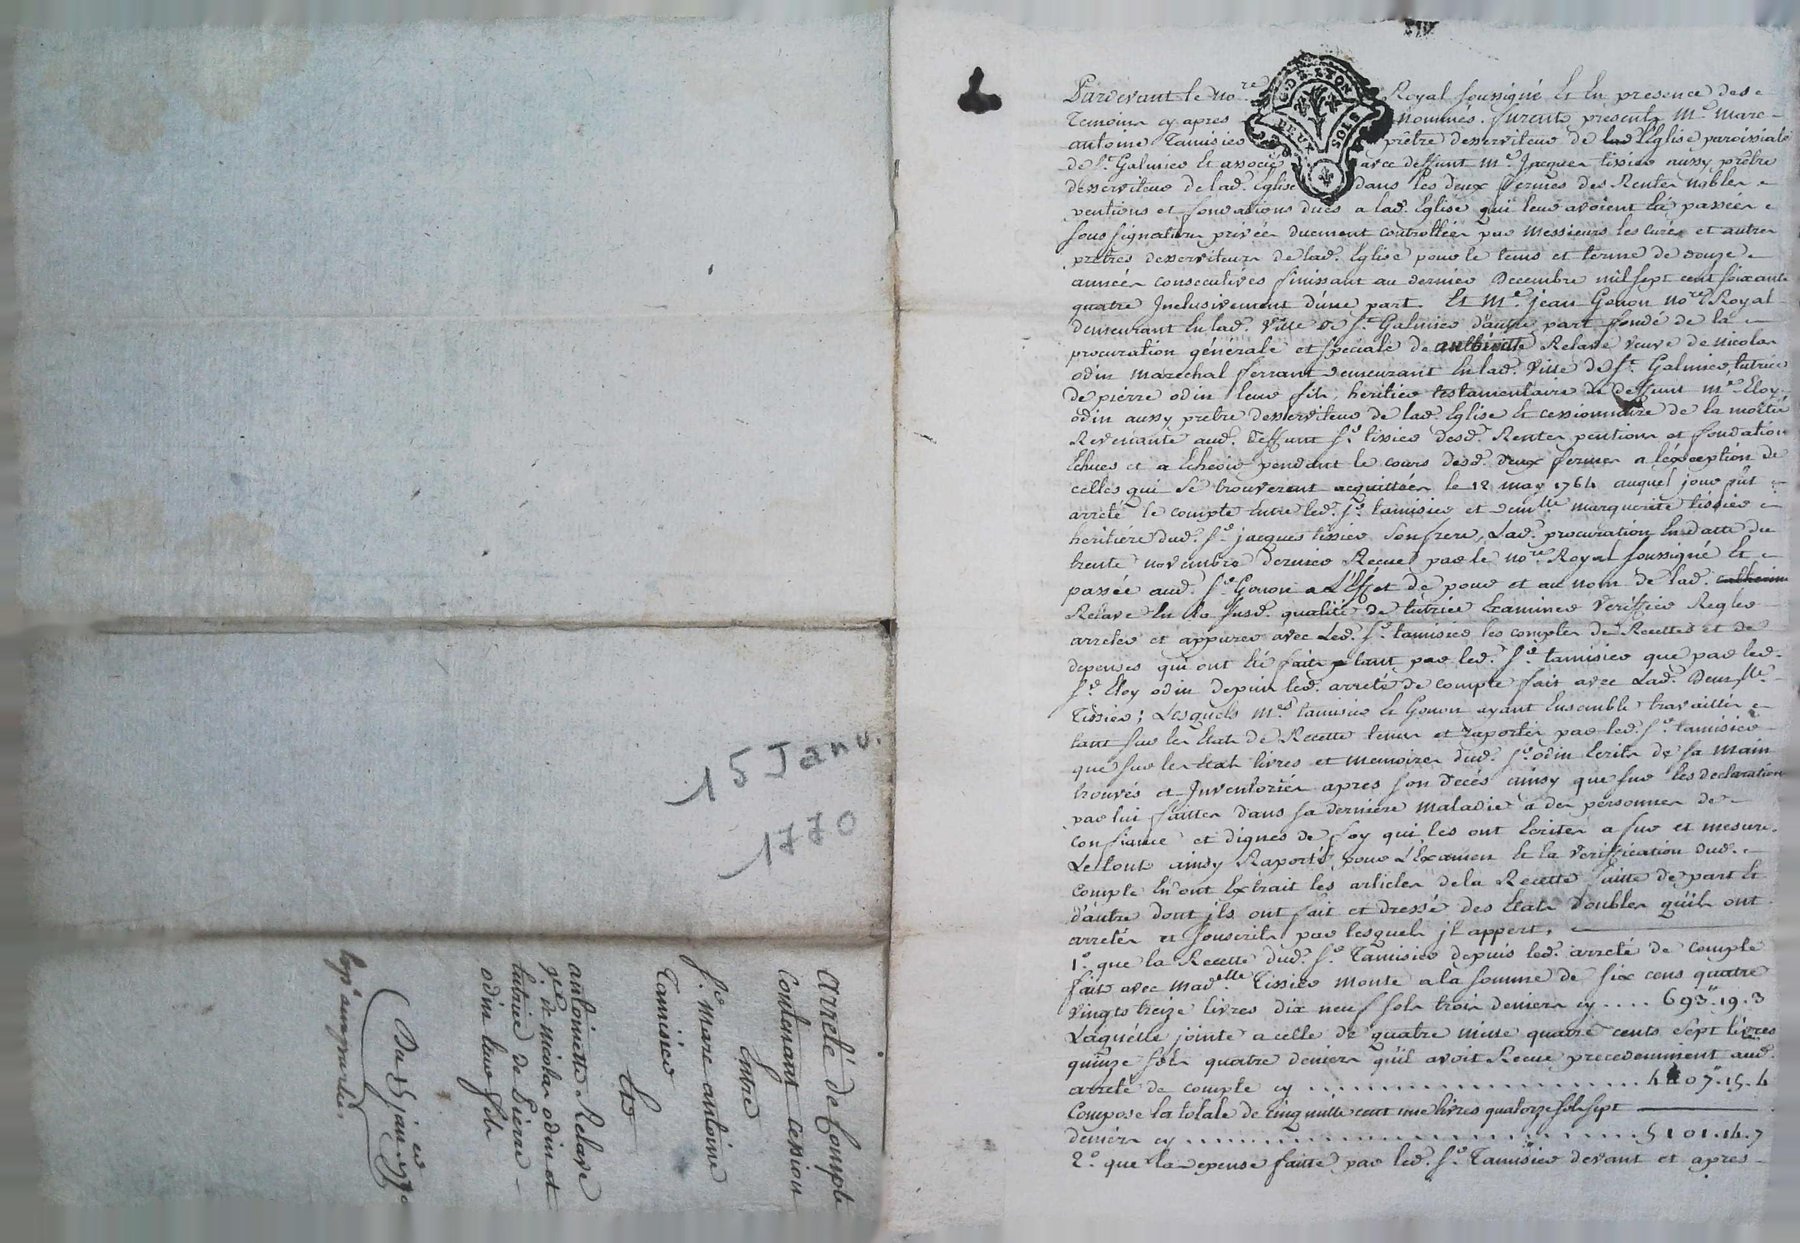 15 Janv.
1770
arreté de Compte
Contenant cession
Entre
Sr. Marc antoine
Tamisier
Et
antoinette Relave
ve. de Nicolas odin et
tutrice de Pierre
odin leur fils
Du 15 janv. 1770
Expé. aux parties.
G. DE LYON
DEUX SOLS
Pardevant le nore Royal soussigné Et En presence des
Temoins cy apres nommés. furent presents Me. Marc
antoine Tamisier prêtre desserviteur de lad Eglise paroissiale
de St. Galmier Et associé avec deffunt Me. Jacques tissier aussy prêtre
desserviteur de lad. Eglise dans les deux fermes des Rentes nobles
pentions et fondations dues a lad. Eglise qui leur avoient été passées
sous signatures privées duement controllées par Messieurs les curé et autres
prêtres desserviteurs de lad. Eglise pour le tems et terme de douze
années consecutives finissant au dernier Decembre mil sept cent soixante
quatre Inclusivement d'une part. Et Me. jean Gonon nore Royal
demeurant En lad. Ville de St. Galmier d'autre part fondé de la
procuration générale et speciale de Relave veuve de nicolas
odin marechal ferrant demeurant En lad. Ville de St. Galmier, tutrice
de pierre odin leur fils, heritier testamentaire de deffunt Me. Eloy
odin aussy prêtre desserviteur de lad. Eglise Et cessionnaire de la moitié
Revenante aud. deffunt Sr. tissier desd. Rentes pentions et fondations
Echues et a Echeoir pendant le cours desd. deux fermes a l'exception de
celles qui se trouverent acquittées le 12 may 1764 auquel jour fut
arreté le compte entre led. Sr. tamisier et demlle marguerite tissier
heritière dud. Sr. jacques tissier son frere, Lad. procuration En datte du
trente novembre dernier Recue par le nore Royal soussigné Et
passée aud. Sr. Gonon a L'Effet de pour et au nom de lad. catherine
Relave En sa susd. qualité de tutrice Examiner Verifier Regler
arreter et appurer avec Led. Sr. tamisier les comptes de Recettes et de
depenses qui ont été faits tant par led. Sr. tamisier que par led.
Sr. Eloy odin depuis led. arreté de compte fait avec Lad. Demlle.
Tissier; Lesquels Mes. tamisier Et Gonon ayant Ensemble travaillé
tant sur les Etats de Recette tenus et raportés par led. Sr. tamisier
que sur les Etats livres et memoires dud. Sr. odin Ecrits de sa main
trouvés et Inventoriés apres son decés ainsy que sur les declarations
par lui faittes dans sa derniere maladie a des personnes de
confiance et dignes de foy qui les ont Ecrites a fur et mesure.
Le tout ainsy Raporté pour L'Examen Et la Verification dud.
compte En ont Extrait les articles de la Recette faitte de part Et
d'autre dont jls ont fait et dressé des Etats doubles quils ont
arretés et souscrits par lesquels jl appert.
1o. que la Recette dud. Sr. Tamisier depuis led. arreté de compte
fait avec madelle Tissier monte a la somme de six cens quatre
vingts treize livres dix neuf sols trois deniers cy .... 693.19.3
Laquelle jointe a celle de quatre mille quatre cents sept livres
quinze sols quatre deniers qu'il avoit Recue precedemment aud.
arreté de compte cy .... 4407.15.4
Compose la totale de Cinq mille cent une livres quatorze sols sept
deniers cy .... 5101.14.7
2o. que la depense faitte par led. Sr. Tamisier devant et apres